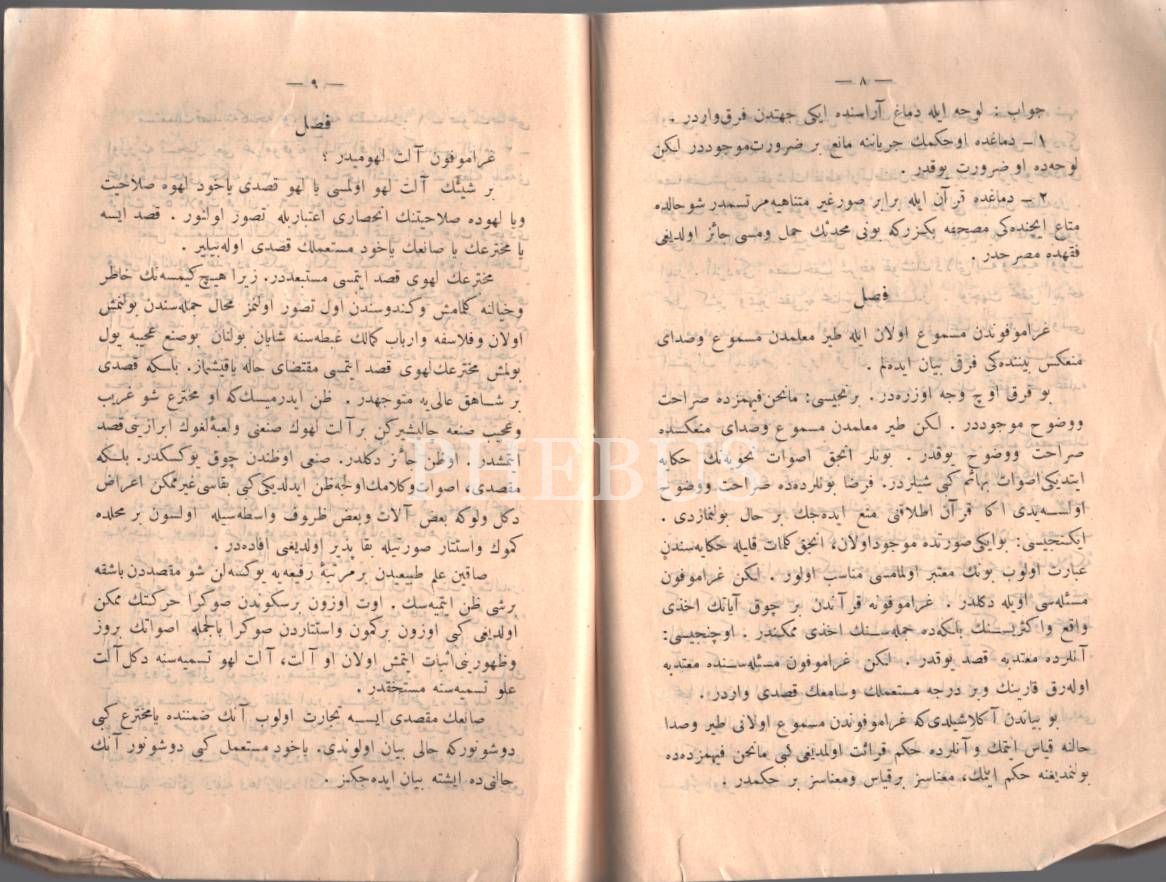 — ٨ —
جواب : لوحه ایله دماغ آراسنده ایکی جهتدن فرق واردر .
١ – دماغده اوحکمك جریاننه مانع بر ضرورت موجوددر لکن
لوحه‌ده او ضرورت یوقدر .
٢ – دماغده قرآن ایله برابر صور غیر متناهیه مرتسمدر شو حالده
متاع ایچنده‌کی مصحفه بکزرکه بونی محدثك حمل ومسی جائز اولدیغی
فقهده مصرحدر .
فصل
غراموفوندن مسموع اولان ایله طیر معلمدن مسموع وصدای
منعکس بیننده‌کی فرقی بیان ایده‌لم .
بو فرق اوچ وجه اوزره‌در . برنجیسی : مانحن فیهمزده صراحت
ووضوح موجوددر . لکن طیر معلمدن مسموع وصدای منعکسده
صراحت ووضوح یوقدر . بونلر انجق اصوات نحویه‌نك حکایه
ایتدیکی اصوات بهائم کبی شیلردر . فرضا بونلرده‌ده صراحت ووضوح
اولسه‌یدی اکا قرآن اطلاقنی منع ایده‌جك بر حال بولنمازدی .
ایکنجیسی : بوایکی صورتده موجود اولان، انجق کلمات قلیله حکایه‌سندن
عبارت اولوب بونك معتبر اولمامسی مناسب اولور . لکن غراموفون
مسئله‌سی اویله دکلدر . غراموفونه قرآندن بر چوق آیاتك اخذی
واقع واکثریسنك بلکه‌ده جمله‌سنك اخذی ممکندر . اوچنجیسی :
آنلرده معتدبه قصد یوقدر . لکن غراموفون مسئله‌سنده معتدبه
اوله‌رق قارینك وبر درجه مستعملك وسامعك قصدی واردر .
بو بیاندن آکلاشیلدی‌که غراموفوندن مسموع اولانی طیر وصدا
حالنه قیاس اتمك وآنلرده حکم قرائت اولمدیغی کبی مانحن فیهمزده‌ده
بولنمدیغنه حکم ایتمك، معناسز برقیاس ومعناسز بر حکمدر .
— ٩ —
فصل
غراموفون آلت لهومیدر ؟
بر شیئك آلت لهو اولمسی یا لهو قصدی یاخود لهوه صلاحیت
ویا لهوده صلاحیتنك انحصاری اعتباریله تصور اولنور . قصد ایسه
یا مخترعك یا صانعك یاخود مستعملك قصدی اوله‌بیلیر .
مخترعك لهوی قصد ایتمسی مستبعددر. زیرا هیچ کیمسه‌نك خاطر
وخیالنه کلمامش وکندوسندن اول تصور اولنمز محال جمله‌سندن بولنمش
اولان وفلاسفه وارباب کمالك غبطه‌سنه شایان بولنان بوصنع عجیبه یول
بولمش مخترعك لهوی قصد ایتمسی مقتضای حاله یاقیشماز. بلکه قصدی
بر شاهق عالی‌یه متوجهدر . ظن ایدرمیسك‌که او مخترع شو غریب
وعجیب صنعه چالیشیرکن برآلت لهوك صنعنی ولعبهٔ لغوك ابرازینی قصد
اتمشدر . اوظن جائز دکلدر. صنعی اوظندن چوق یوکسکدر. بلکه
مقصدی، اصوات وکلامك اولجه ظن ایدلدیکی کبی بقاسی غیرممکن اعراض
دکل ولوکه بعض آلات وبعض ظروف واسطه‌سیله اولسون بر محلده
کمون واستتار صورتیله بقا پذیر اولدیغی افاده‌در .
صاقین علم طبیعیدن برمرتبهٔ رفیعه‌یه یوکسه‌لن شو مقصددن باشقه
برشی ظن ایتمیه‌سك . اوت اوزون برسکوندن صوکرا حرکتك ممکن
اولدیغی کبی اوزون برکمون واستتاردن صوکرا بالجمله اصواتك بروز
وظهورینی اثبات اتمش اولان او آلت، آلت لهو تسمیه‌سنه دکل آلت
علو تسمیه‌سنه مستحقدر .
صانعك مقصدی ایسه تجارت اولوب آنك ضمننده یا مخترع کبی
دوشونورکه حالی بیان اولوندی. یاخود مستعمل کبی دوشونور آنك
حالی‌ده ایشته بیان ایده‌جکز .
PHEBUS